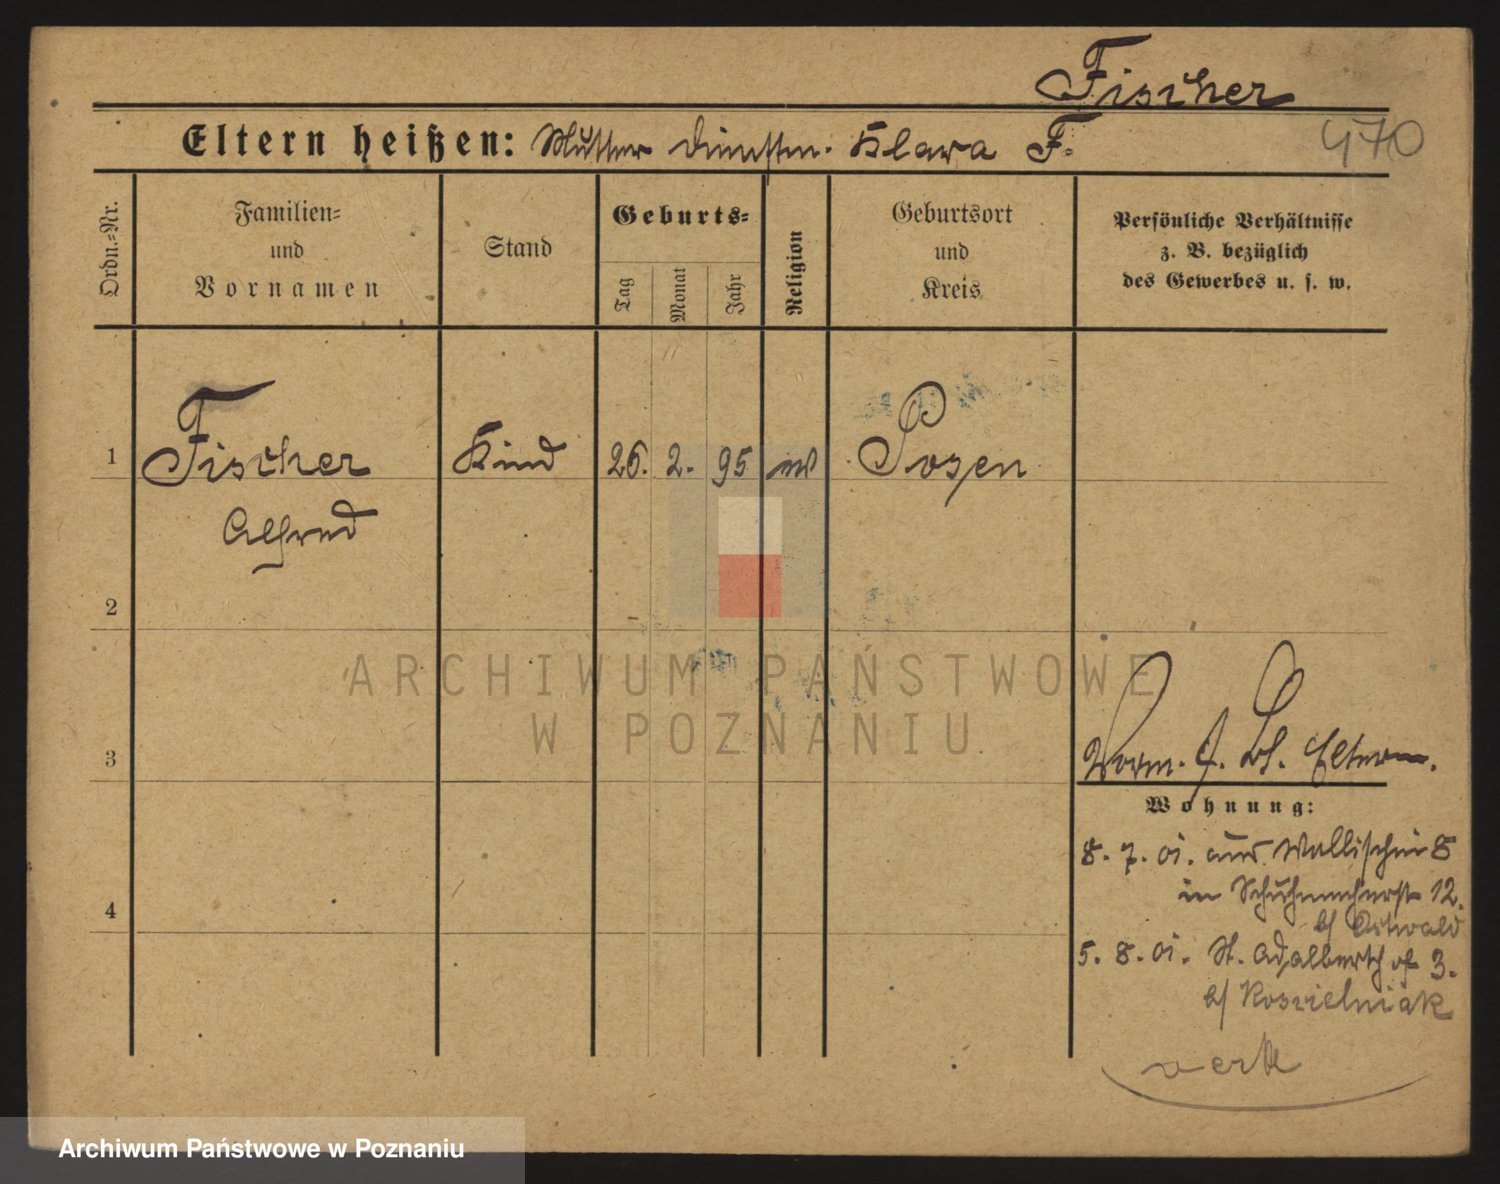 Fischer
Eltern heißen: Mutter Klara F.
470
Ordn.=Nr.
Familien=
und
Vornamen
Stand
Geburts=
Tag
Monat
Jahr
Religion
Geburtsort
und
Kreis
Persönliche Verhältnisse
z. B. bezüglich
des Gewerbes u. s. w.
1 Fischer Kind 26. 2. 95 Posen
Alfred
2
3
Vorm. Eltern.
Wohnung:
8. 7. 01. aus Wallischei 8
in Schuhmacherst 12.
b/ Ostwald
4
5. 8. 01. St. Adalbert 3.
b/ Koscielniak
ARCHIWUM PAŃSTWOWE
W POZNANIU
Archiwum Państwowe w Poznaniu